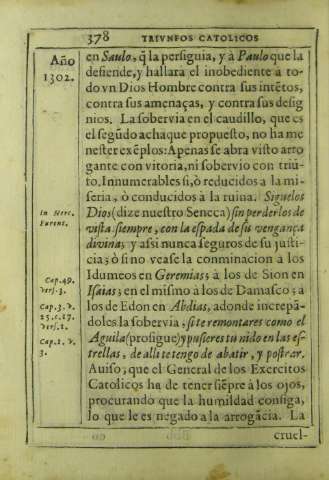 378 TRIVNFOS CATOLICOS
Año
1302.
en Saulo, q̃ la perſiguia, y à Paulo que la
defiende, y hallara el inobediente a to-
do vn Dios Hombre contra ſus intẽtos,
contra ſus amenaças, y contra ſus deſig
nios. La ſobervia en el caudillo, que es
el ſegũdo achaque propueſto, no ha me
neſter exẽplos: Apenas ſe abra viſto arro
gante con vitoria, ni ſobervio con triũ-
to. Innumerables ſi, ò reducidos a la mi-
ſeria, ò conducidos à la ruina. Siguelos
In Herc.
Furent.
Dios (dize nueſtro Seneca) ſin perderlos de
viſta ſiempre, con la eſpada de ſu vengança
divina; y aſsi nunca ſeguros de ſu juſti-
cia; ò ſi no veaſe la conminacion à los
Idumeos en Geremias; à los de Sion en
Cap. 49.
verſ. 3.
Iſaias; en el miſmo à los de Damaſco; a
Cap. 3. v.
25. c. 17.
verſ. 1.
los de Edon en Abdias, adonde increpã-
doles la ſobervia, ſi te remontares como el
Cap. 1. v.
3.
Aguila (proſigue) y puſieres tu nido en las eſ-
trellas, de alli te tengo de abatir, y poſtrar.
Auiſo, que el General de los Exercitos
Catolicos ha de tener ſiẽpre à los ojos,
procurando que la humildad conſiga,
lo que le es negado a la arrogãcia. La
cruel-